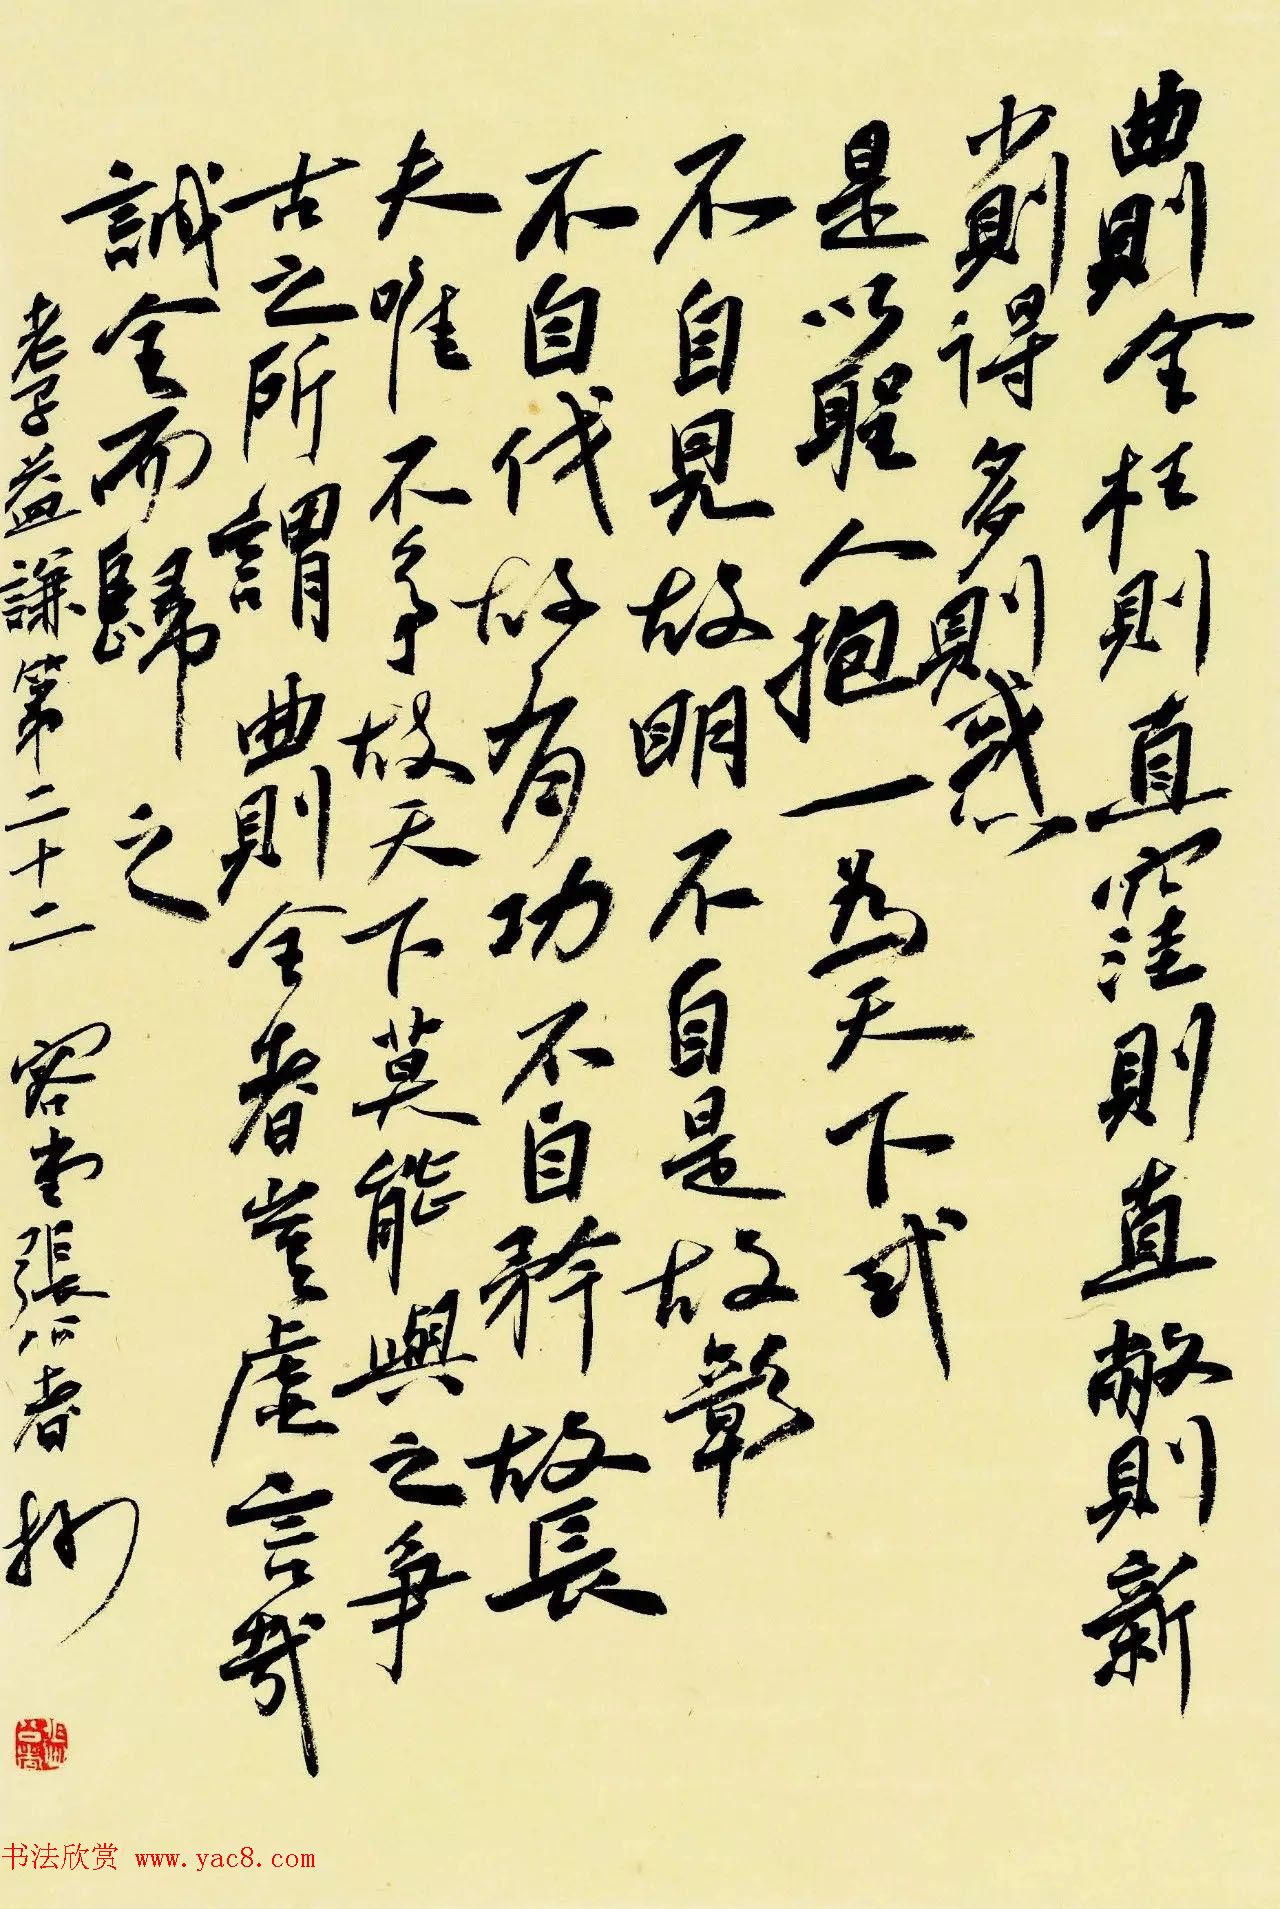 曲則全枉則直窪則直敝則新
少則得多則惑
是以聖人抱一為天下式
不自見故明不自是故彰
不自伐故有功不自矜故長
夫唯不争故天下莫能與之爭
古之所謂曲則全者豈虛言哉
誠全而歸之
老子益謙第二十二 容堂張公者
书法欣赏 www.yac8.com